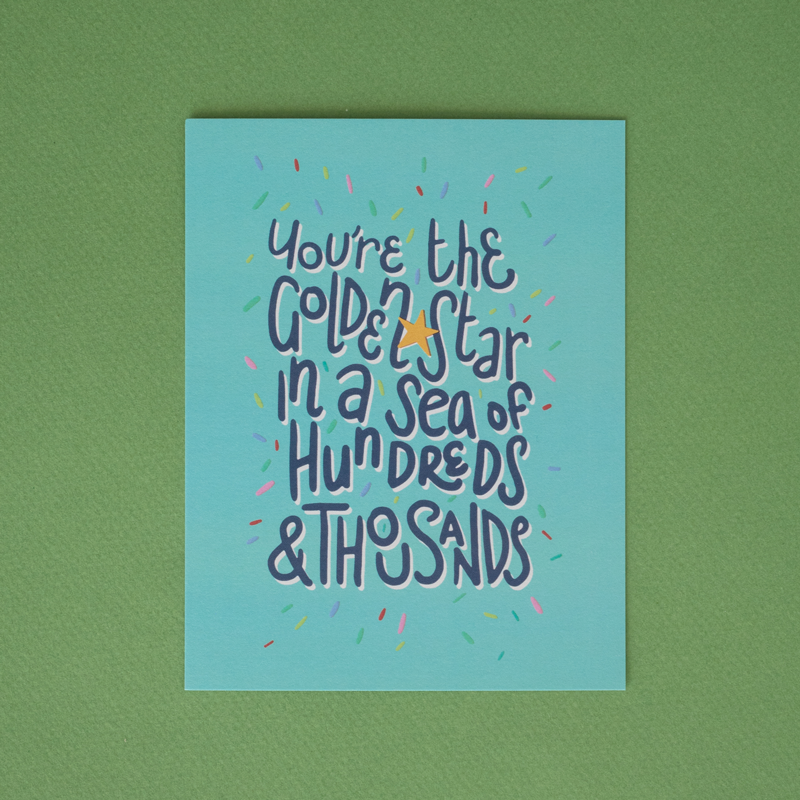 You're the
Golden Star
in a sea of
Hundreds
& Thousands